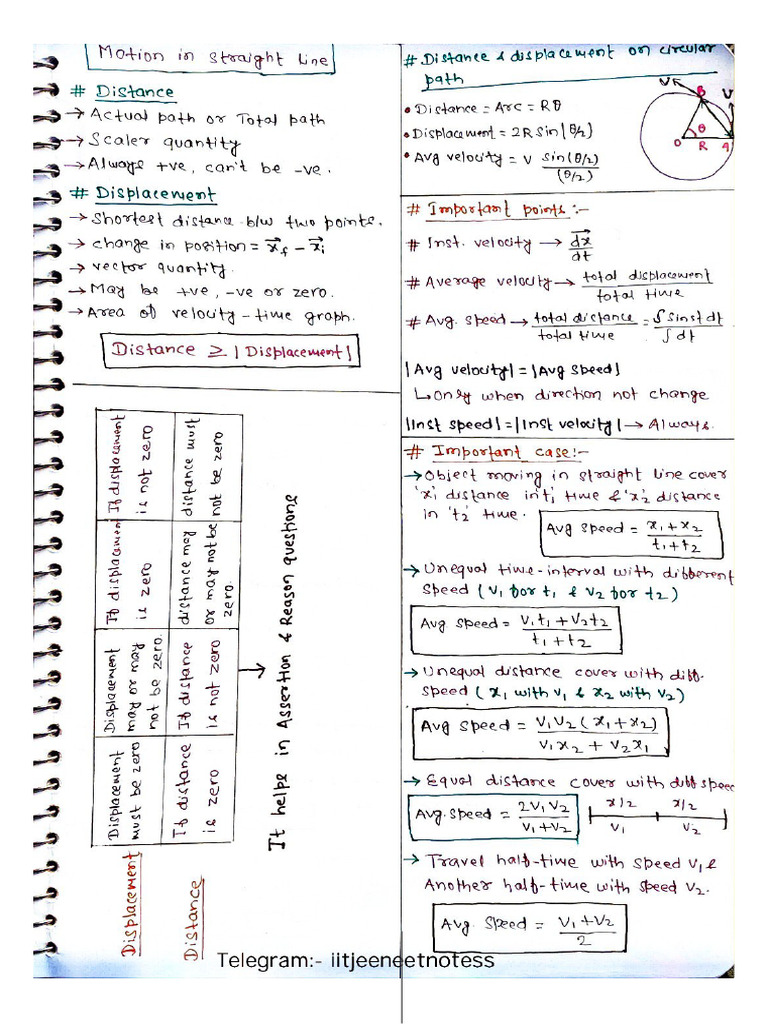 Motion in straight line
# Distance
→ Actual path or Total path
→ Scaler quantity
→ Always +ve, can't be -ve.
# Displacement
→ Shortest distance b/w two points.
→ change in position = x⃗f - x⃗i
→ vector quantity.
→ May be +ve, -ve or zero.
→ Area of velocity-time graph.
Distance ≥ |Displacement|
If displacement is not zero
distance must not be zero
If displacement is zero
distance may or may not be zero.
Displacement may or may not be zero.
If distance is not zero
Displacement must be zero
If distance is zero
Displacement
Distance
→ It helps in Assertion & Reason questions
# Distance & displacement on circular
path
• Distance = Arc = Rθ
• Displacement = 2R sin(θ/2)
• Avg velocity = v sin(θ/2)/(θ/2)
V B V
θ
O R A
# Important points:-
# Inst. velocity → dx⃗/dt
# Average velocity → total displacement/total time
# Avg. speed → total distance/total time = ∫sinst dt/∫dt
|Avg velocity| = |Avg speed|
↳ Only when direction not change
|Inst speed| = |Inst velocity| → Always.
# Important case:-
→ Object moving in straight line cover
'x₁' distance in 't₁' time & 'x₂' distance
in 't₂' time.
Avg speed = x₁+x₂/t₁+t₂
→ Unequal time-interval with different
speed (v₁ for t₁ & v₂ for t₂)
Avg speed = v₁t₁+v₂t₂/t₁+t₂
→ Unequal distance cover with diff.
speed (x₁ with v₁ & x₂ with v₂)
Avg speed = v₁v₂(x₁+x₂)/v₁x₂+v₂x₁
→ Equal distance cover with diff speed
Avg. speed = 2v₁v₂/v₁+v₂
x/2 x/2
v₁ v₂
→ Travel half-time with speed v₁ &
Another half-time with speed v₂.
Avg. speed = v₁+v₂/2
Telegram:- iitjeeneetnotess